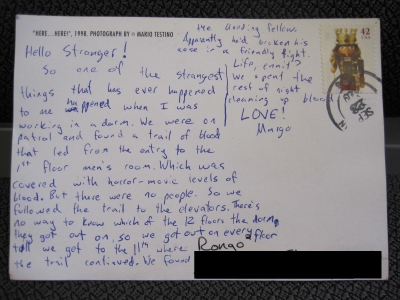 "HERE...HERE!", 1998. PHOTOGRAPH BY © MARIO TESTINO
Hello Stranger!
So one of the strangest
things that has ever happened
to me happened when I was
working in a dorm. We were on
patrol and found a trail of blood
that led from the entry to the
1st floor men's room. Which was
covered with horror-movie levels of
blood. But there were no people. So we
followed the trail to the elevators. There's
no way to know which of the 12 floors the dorm
they got out on, so we got out on every floor
till we got to the 11th where
the trail continued. We found
the bleeding fellow.
Apparently he'd broken his
nose in a friendly fight.
Life, ennit?
We spent the
rest of night
cleaning up blood
LOVE!
Margo
42
USA
Rongo